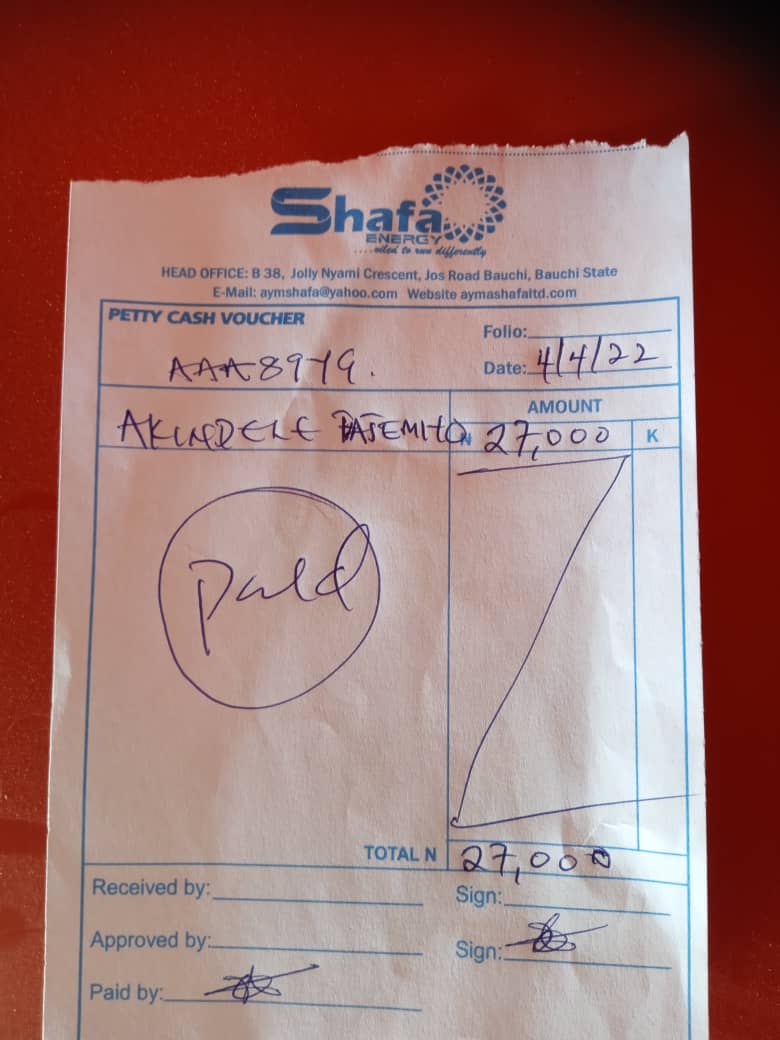 Shafa
ENERGY
....oiled to run differently
HEAD OFFICE: B 38, Jolly Nyami Crescent, Jos Road Bauchi, Bauchi State
E-Mail: aymshafa@yahoo.com Website aymashafaltd.com
PETTY CASH VOUCHER
Folio:
AAA8979.
Date: 4/4/22
AMOUNT
AKINDELE N 27,000 K
Paid
TOTAL N 27,000
Received by: Sign:
Approved by: Sign:
Paid by: